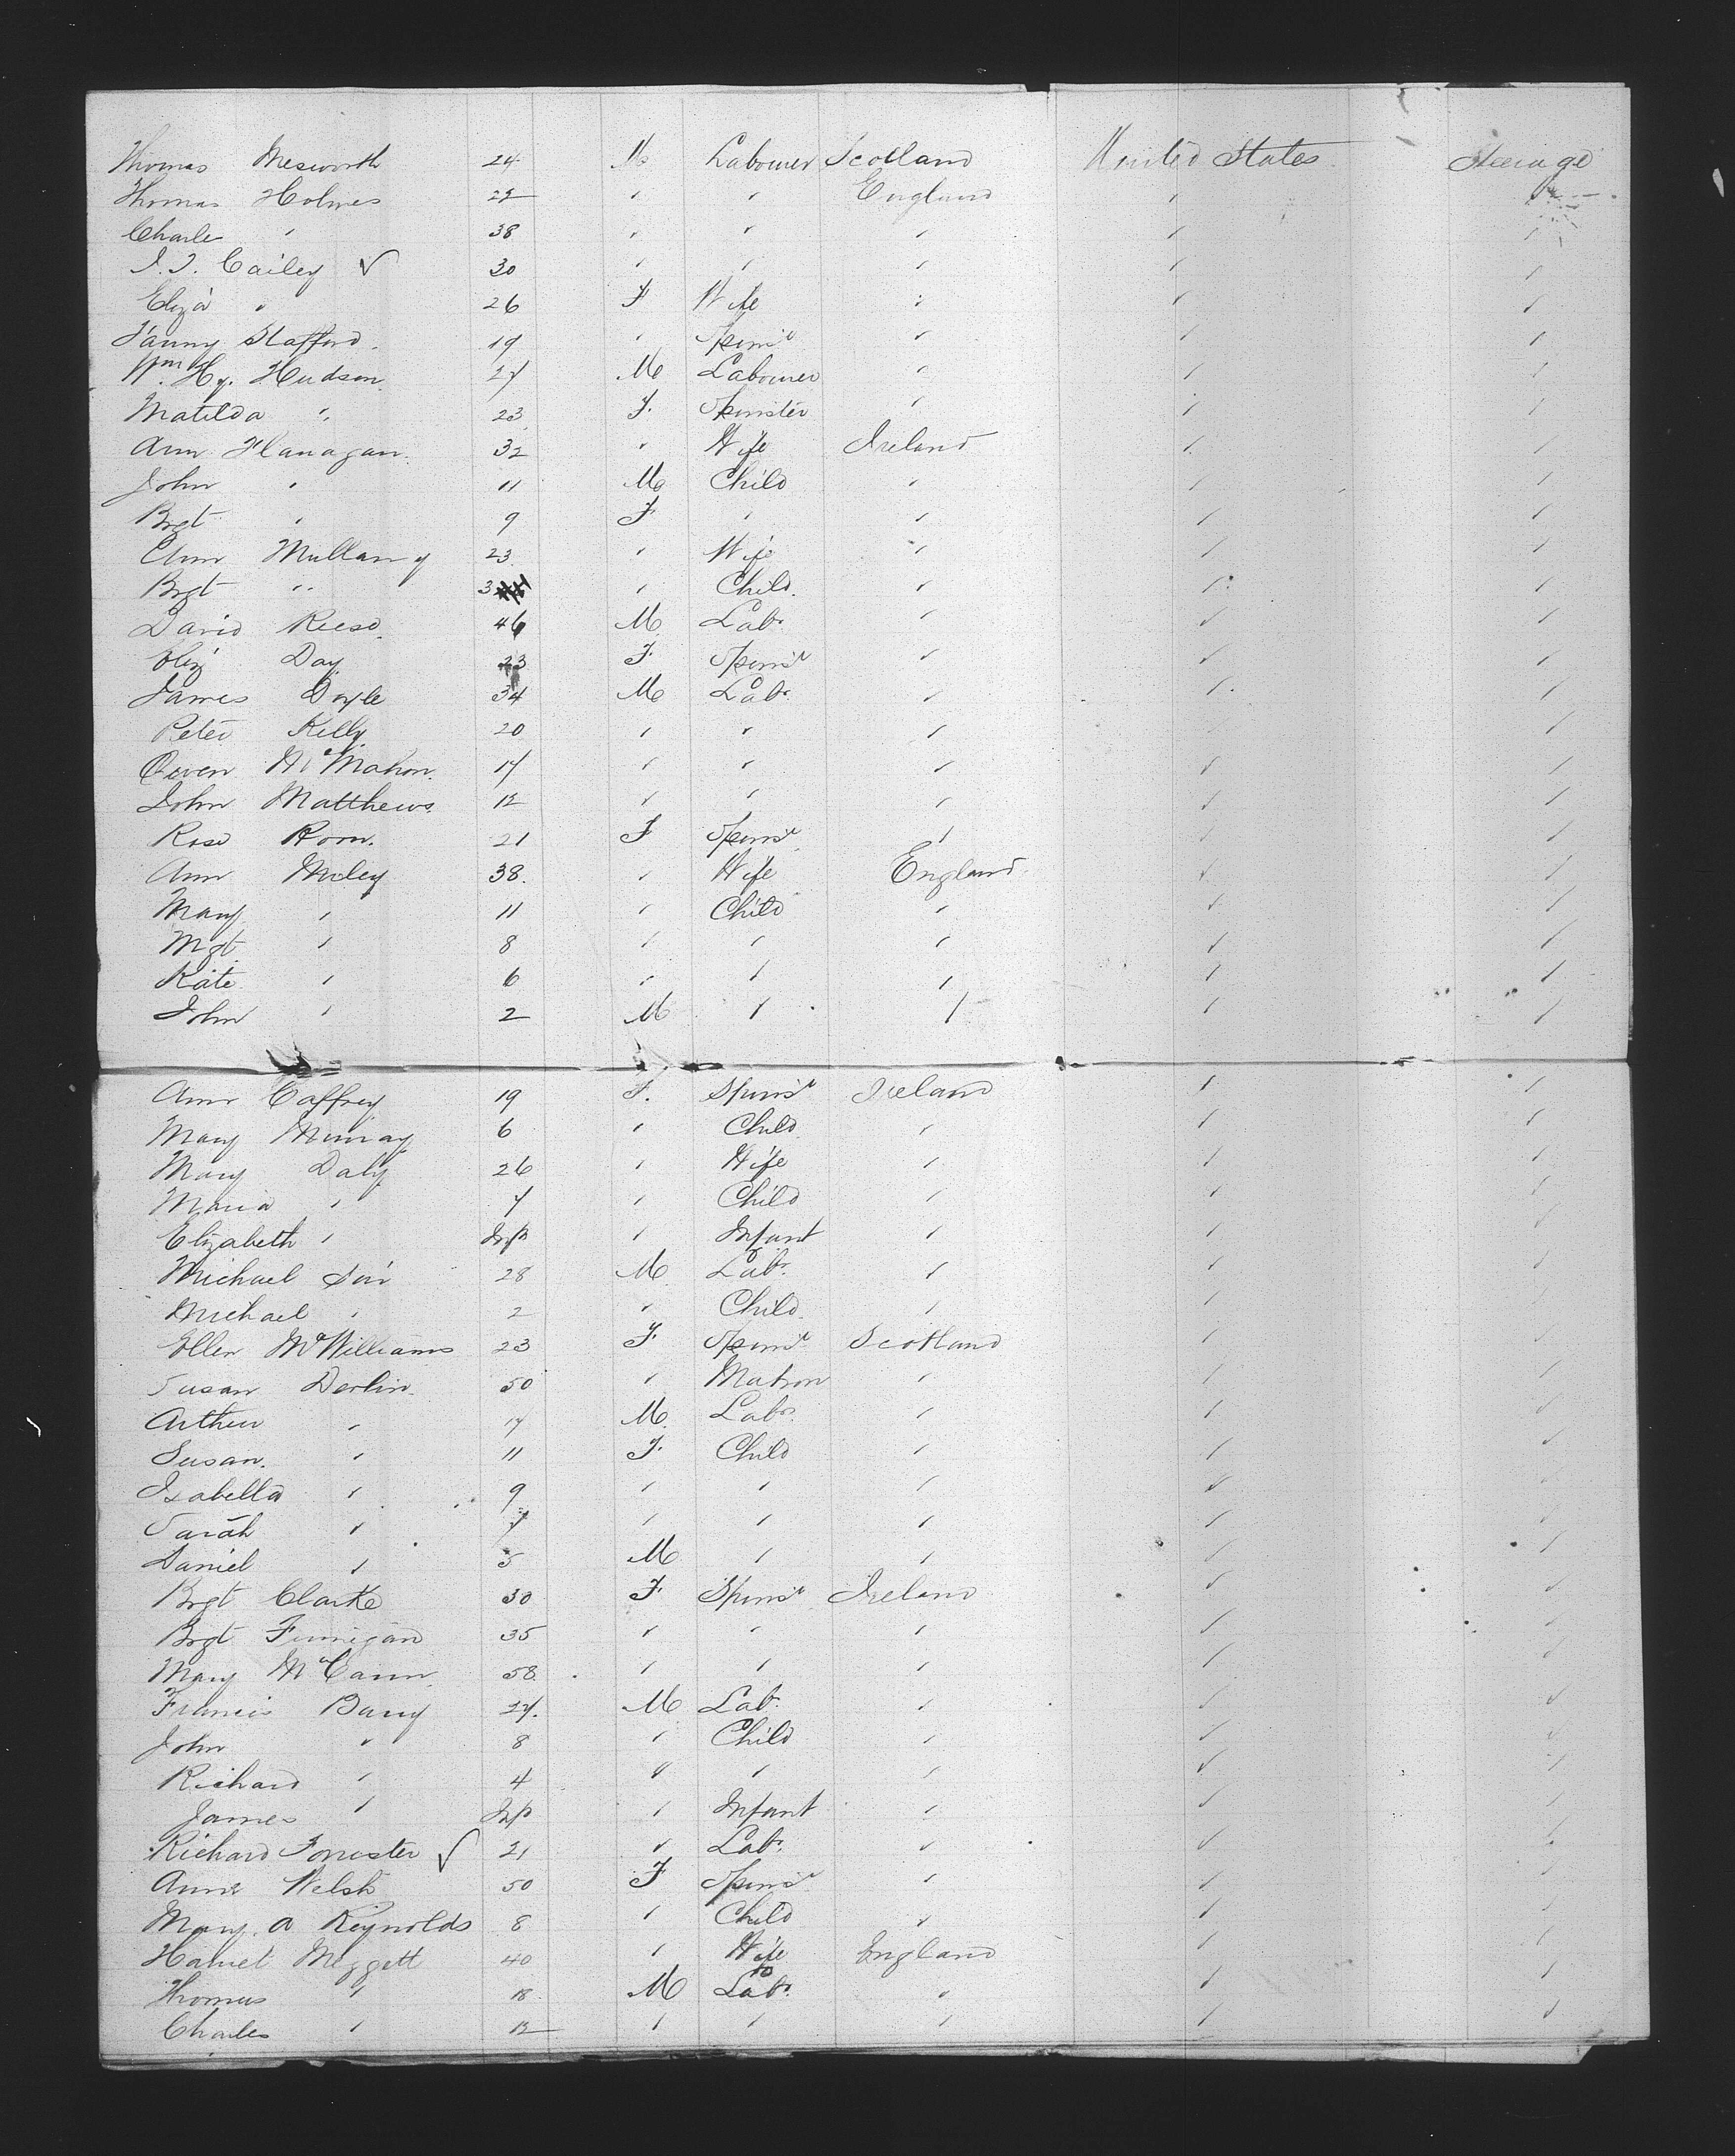 Thomas Mesworth 24 M Labourer Scotland United States Steerage
Thomas Holmes 22 " " England " "
Charles " 38 " " " " "
J. T. Cailey √ 30 " " " " "
Eliza " 26 F Wife " " "
Fanny Stafford 19 " Spinsr " " "
Wm. Hy. Hudson 27 M Labourer " " "
Matilda " 23 F. Spinster " " "
Ann Flanagan 32 " Wife Ireland " "
John " 11 M Child " " "
Brgt " 9 F " " " "
Ann Mullany 23 " Wife " " "
Brgt " 3 " Child " " "
David Reese 46 M Labr " " "
Eliz Day 23 F Spinsr " " "
James Doyle 34 M Labr " " "
Peter Kelly 20 " " " "
Owen McMahon 17 " " " " "
John Matthews 12 " " " " "
Rose 21 F Spinsr " " "
Ann Miley 38 " Wife England " "
Mary " 11 " Child " " "
Mgt " 8 " " " " "
Kate " 6 " " " " "
John " 2 M " " " "
Ann Caffrey 19 F. Spinsr Ireland " "
Mary Murray 6 " Child " " "
Mary Daly 26 " Wife " " "
Maria " 7 " Child " " "
Elizabeth " Inft " Infant " " "
Michael 28 M Labr " " "
Michael " 2 " Child " " "
Ellen McWilliams 23 F Spinsr Scotland " "
Susan Devlin 50 " Matron " " "
Arthur " 17 M Labr " " "
Susan " 11 F Child " " "
Isabella " 9 " " " " "
Sarah " 7 " " " " "
Daniel " 5 M " " " "
Brgt Clarke 30 F Spinsr Ireland " "
Brgt Finnigan 35 " " " " "
Mary McCann 58 " " " " "
Francis Barry 27 M Labr " " "
John " 8 " Child " " "
Richard " 4 " " " " "
James " Inft " Infant " " "
Richard Forrester √ 21 " Labr " " "
Anne Welsh 50 F Spinsr " " "
Mary A Reynolds 8 " Child " " "
Harriet Meggett 40 " Wife England " "
Thomas " 18 M Labr " " "
Charles " 12 " " " " "